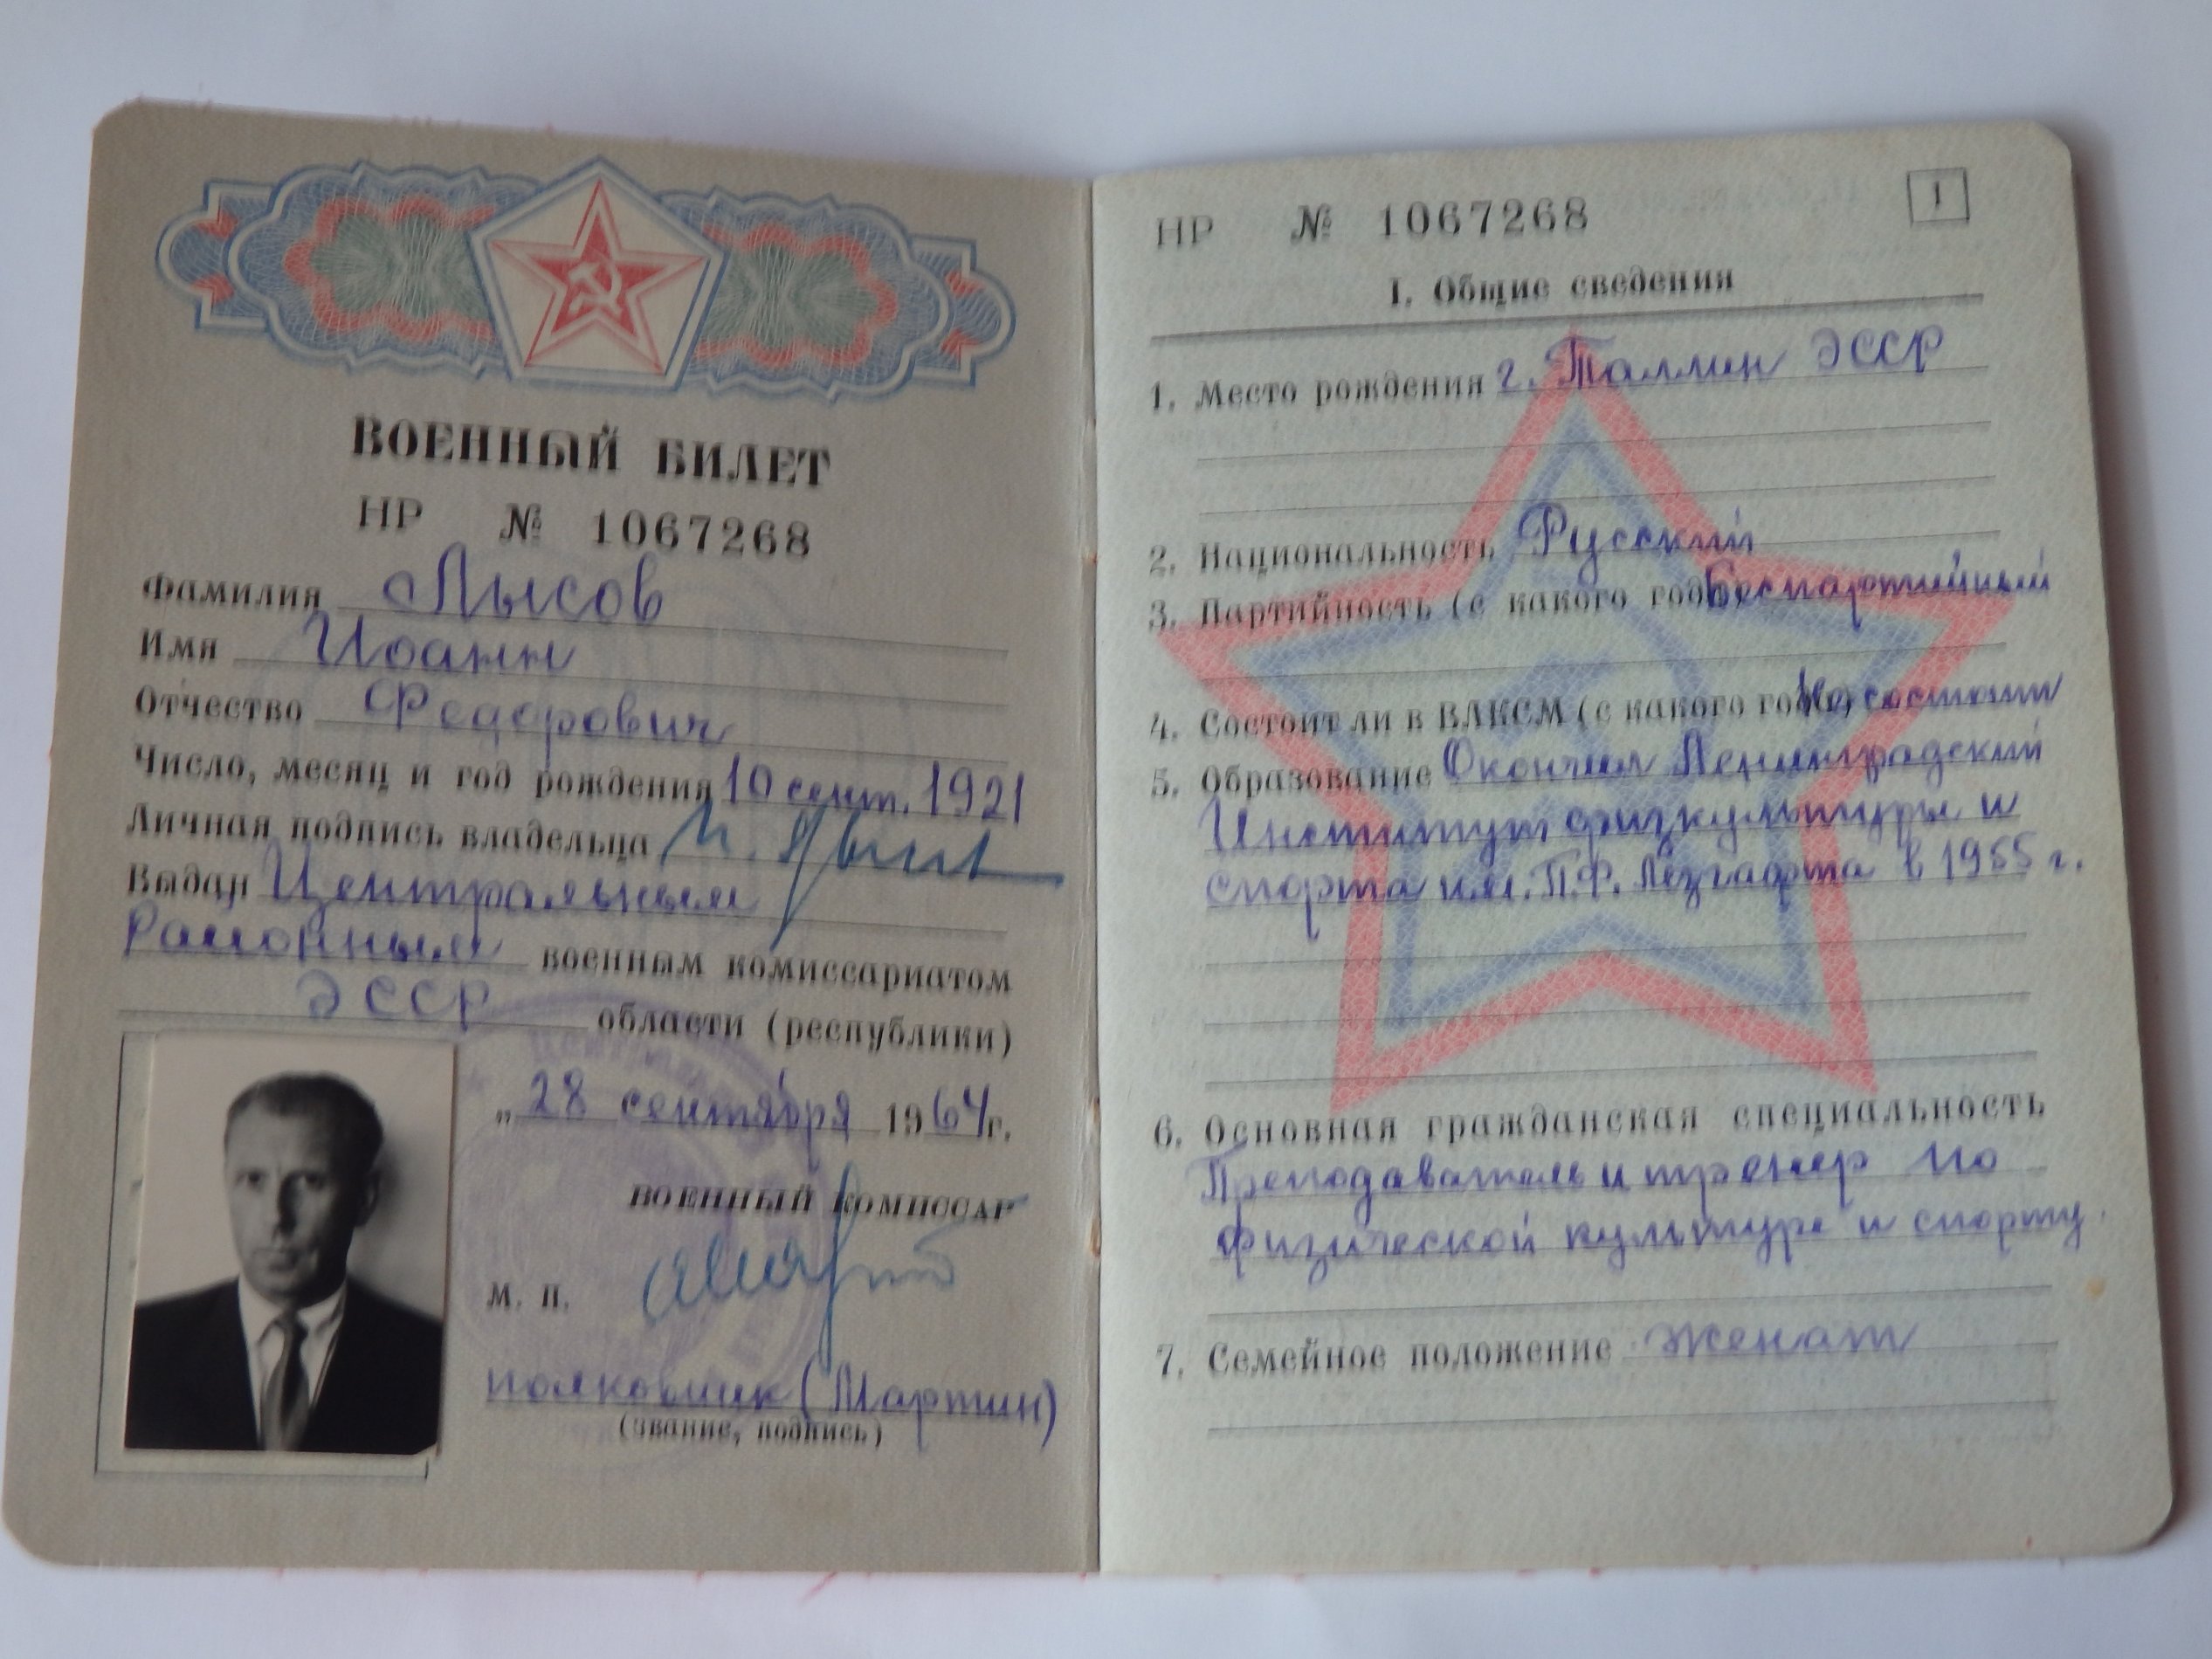 ВОЕННЫЙ БИЛЕТ
НР № 1067268
Фамилия Лысов
Имя Иоанн
Отчество Федорович
Число, месяц и год рождения 10 сент. 1921
Личная подпись владельца
Выдан Центральным
Районным военным комиссариатом
ЭССР области (республики)
„28 сентября 1964г.
ВОЕННЫЙ КОМИССАР
М. П.
полковник (Мартин)
(звание, подпись)
НР № 1067268
1
I. Общие сведения
1. Место рождения г. Таллин ЭССР
2. Национальность Русский
3. Партийность (с какого года) Беспартийный
4. Состоит ли в ВЛКСМ (с какого года) Не состоит
5. Образование Окончил Ленинградский
Институт физкультуры и
спорта им. П.Ф. Лезгафта в 1955 г.
6. Основная гражданская специальность
Преподаватель и тренер по
физической культуре и спорту.
7. Семейное положение женат